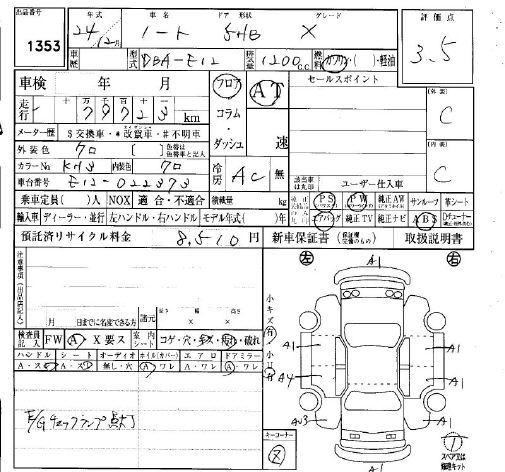 出品番号 1353
年式 24年12月 車名 ノート ドア 形状 5HB グレード X
評価点 3.5
車歴 型式 DBA-E12 排気量 1200c.c. 燃料 ガソリン( )・軽油
車検 年 月 フロア AT セールスポイント
走行 十 万 千 百 十 km
コラム・ダッシュ 速
外装 C
メーター歴 $交換車・*改竄車・#不明車
外装色 クロ
カラーNo KH3 内装色 クロ
冷房 AC 無 ユーザー仕入車
内装 C
車台番号 E12-022373
乗車定員( )人 NOX 適合・不適合 積載量 kg PS PW 純正AW サンルーフ 革シート
輸入車 ディーラー・並行 左ハンドル・右ハンドル モデル年式( )年 エアバッグ 純正TV 純正ナビ ABS
預託済リサイクル料金 8,510円 新車保証書 取扱説明書
注意事項(出品店記入)
左 A1 右
月 日までに名変できる方 諸元 長さ 幅 高さ
小キズ 有
検査員記入 FW A X要ス 案内シート コゲ・穴・キレ・汚れ・破れ
小凹 有
ハンドル シート オーディオ ホイル(カバー) エアロ ドアミラー
A・ス A・ス 無し・穴 A・ワレ A・ワレ A・ワレ
A1 A1
A4 A1
A1
E/Gチェックランプ点灯
キーコーナー 2
A1
スペアタイヤ又は修理キット